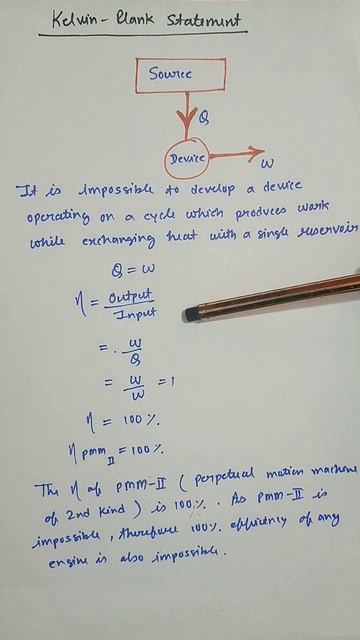 Kelvin-Plank Statement
Source
Q
Device
W
It is impossible to develop a device
operating on a cycle which produces work
while exchanging heat with a single reservoir
Q = W
η = Output / Input
= . W / Q
= W / W = 1
η = 100 %.
η pmm II = 100 %.
The η of pmm-II ( perpetual motion machine
of 2nd kind ) is 100 %. As pmm-II is
impossible, therefore 100 %. efficiency of any
engine is also impossible.